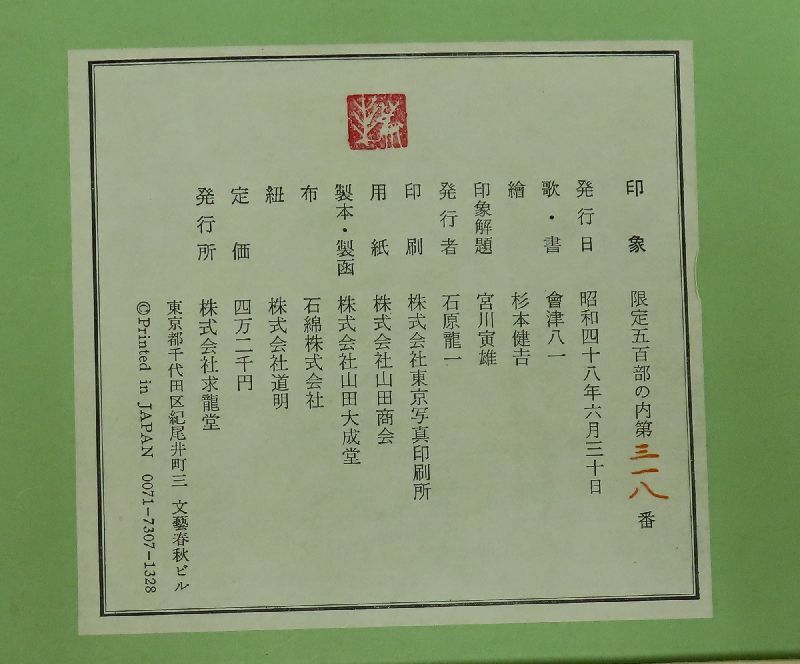 印象 限定五百部の内第三一八番
発行日 昭和四十八年六月三十日
歌・書 會津八一
繪 杉本健吉
印象解題 宮川寅雄
発行者 石原龍一
印刷 株式会社東京写真印刷所
用紙 株式会社山田商会
製本・製函 株式会社山田大成堂
布 石綿株式会社
紐 株式会社道明
定価 四万二千円
発行所 株式会社求龍堂
東京都千代田区紀尾井町三 文藝春秋ビル
©Printed in JAPAN 0071-7307-1328